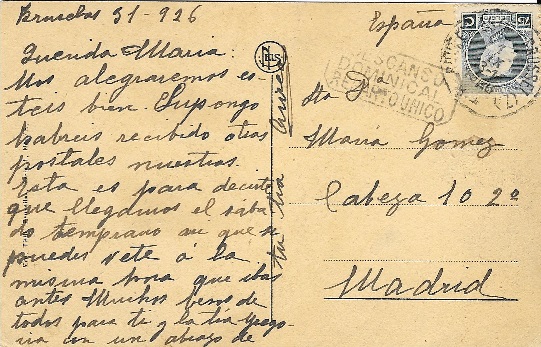 Bruselas 31-926
Querida Maria:
Nos alegraremos es-
teis bien. Supongo
habreis recibido otras
postales nuestras.
Esta es para decirte
que llegamos el sába-
do temprano asi que
puedes vete á la
misma hora que ibas
antes Muchos besos de
todos para ti y la tia Grego-
ria con un abrazo de
tu tia
España
DESCANSO
DOMINICAL
Srta Dª
Maria Gomez
Cabeza 10 2º
Madrid